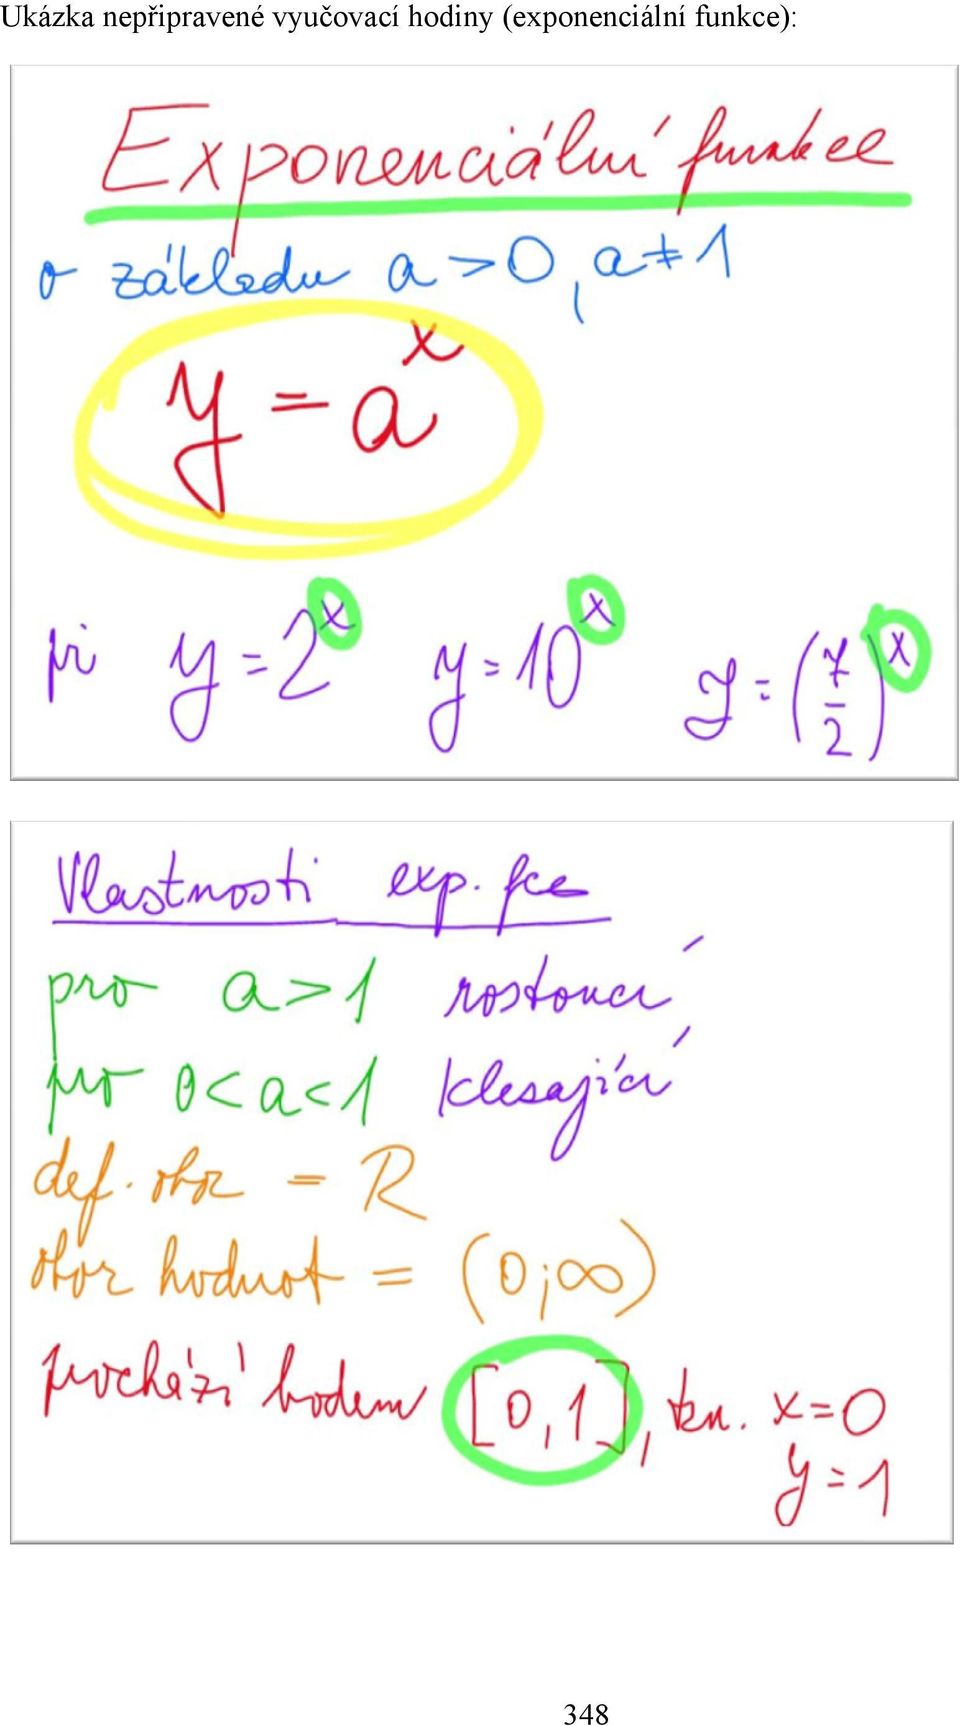 Ukázka nepřipravené vyučovací hodiny (exponenciální funkce):
Exponenciální funkce
o základu a>0, a≠1
y = a^x
př y = 2^x y = 10^x y = (7/2)^x
Vlastnosti exp. fce
pro a>1 rostoucí
pro 0<a<1 klesající
def. obor = R
obor hodnot = (0;∞)
prochází bodem [0,1], tzn. x=0
y=1
348